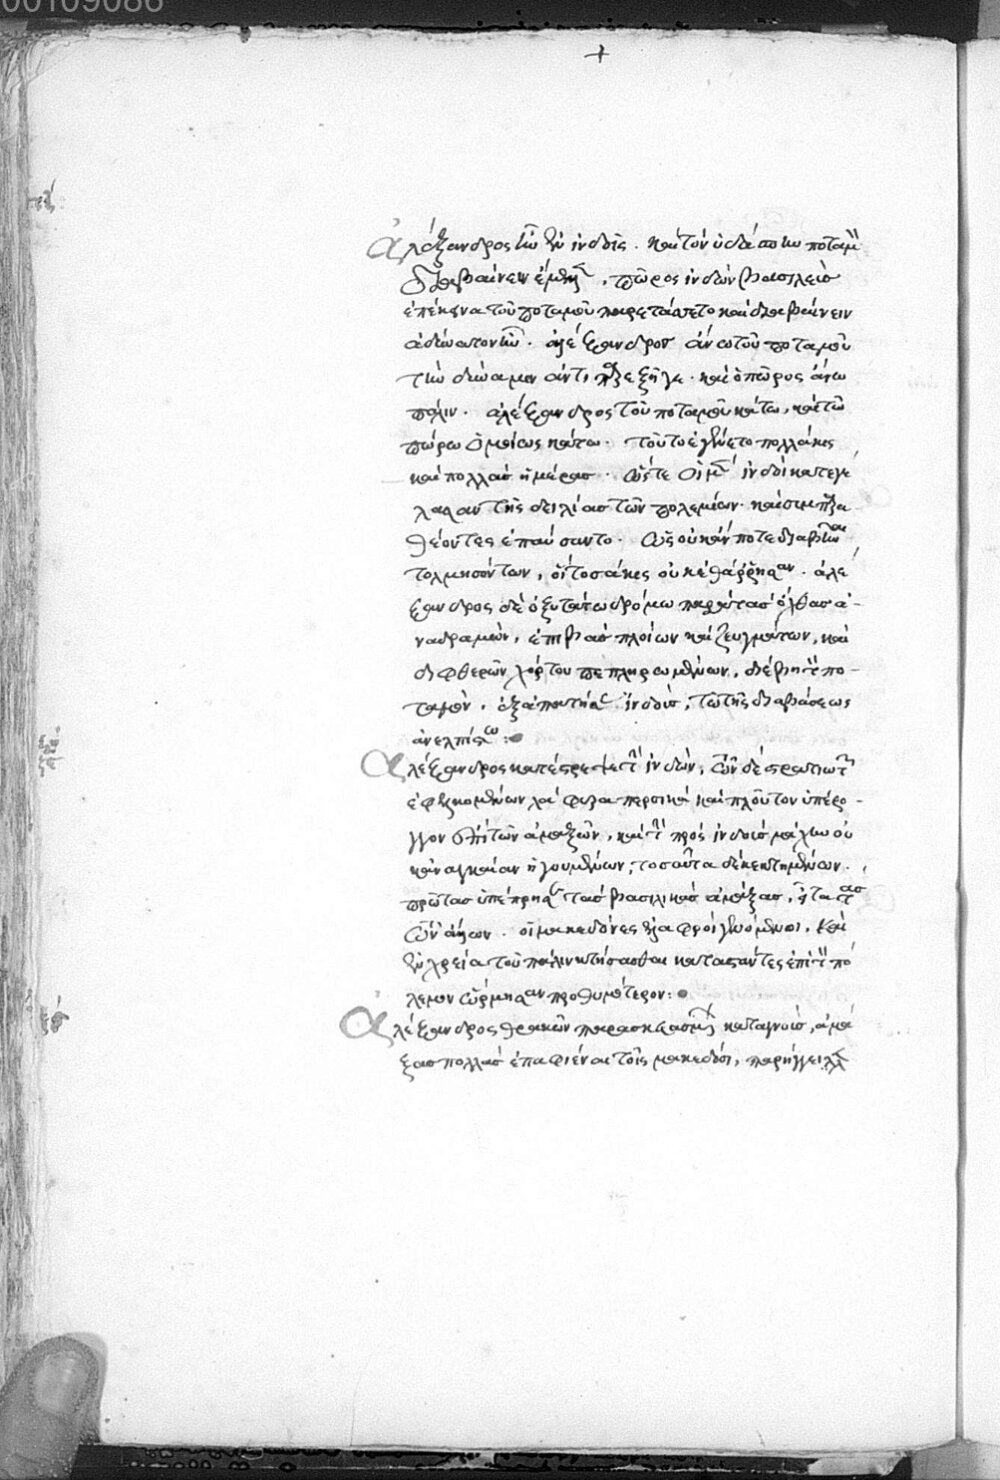 00109086
+
Ἀλέξανδρος ἦν ἐν ἰνδοῖς. καὶ τὸν ὑδάσπην ποταμὸν
διαβαίνειν ἔμελλε, πῶρος ἰνδῶν βασιλεὺς
ἐπέκεινα τοῦ ποταμοῦ παρετάττετο καὶ διαβαίνειν
ἀδύνατον ἦν. ἀλέξανδρος ἄνω τοῦ ποταμοῦ
τὴν δύναμιν ἀντιπαρεξῆγε. καὶ ὁ πῶρος ἄνω
πάλιν. ἀλέξανδρος τοῦ ποταμοῦ κάτω, καὶ τῶ
πώρω ὁμοίως κάτω. τοῦτο ἐγένετο πολλάκις
καὶ πολλὰς ἡμέρας. ὥστε οἱ μὲν ἰνδοὶ κατεγέ
λασαν τῆς δειλίας τῶν πολεμίων. καὶ συμπαρα
θέοντες ἐπαύσαντο. ὡς οὐκ ἄν ποτε διαβῆναι
τολμησόντων, οἳ τοσάκις οὐκ ἐθάῤῥησαν. ἀλέ
ξανδρος δὲ ὀξυτάτω δρόμω παρὰ τὰς ὄχθας ἀ-
ναδραμὼν, ἐπιβὰς πλοίων καὶ ζευγμάτων, καὶ
διφθερῶν χόρτου πεπληρωμένων, διέβη τὸν πο-
ταμὸν, ἐξαπατήσας ἰνδοὺς, τῶ τῆς διαβάσεως
ἀνελπίστω:
Ἀλέξανδρος κατέστρεψε τὴν ἰνδῶν, τῶν δὲ στρατιωτῶν
ἐφελκομένων λάφυρα περσικὰ καὶ πλοῦτον ὑπέρο-
γκον ἐπὶ τῶν ἁμαξῶν, καὶ τὴν πρὸς ἰνδοὺς μάχην οὐ
κ ἀναγκαίαν ἡγουμένων, τοσαῦτα δὲ κεκτημένων.
πρῶτας ὑπέπρησε τὰς βασιλικὰς ἁμάξας, εἶτα τὰς
τῶν ἄλλων. οἱ μακεδόνες ἐλαφροὶ γενόμενοι, καὶ
ἐν χρεία τοῦ πάλιν κτήσασθαι καταστάντες ἐπὶ τὸν πό
λεμον ὥρμησαν προθυμότερον:
Ἀλέξανδρος θρακῶν παρασκευασμένων καταγνοὺς, ἁμά
ξας πολλὰς ἐπαφιέναι τοῖς μακεδόσι, παρήγγειλε